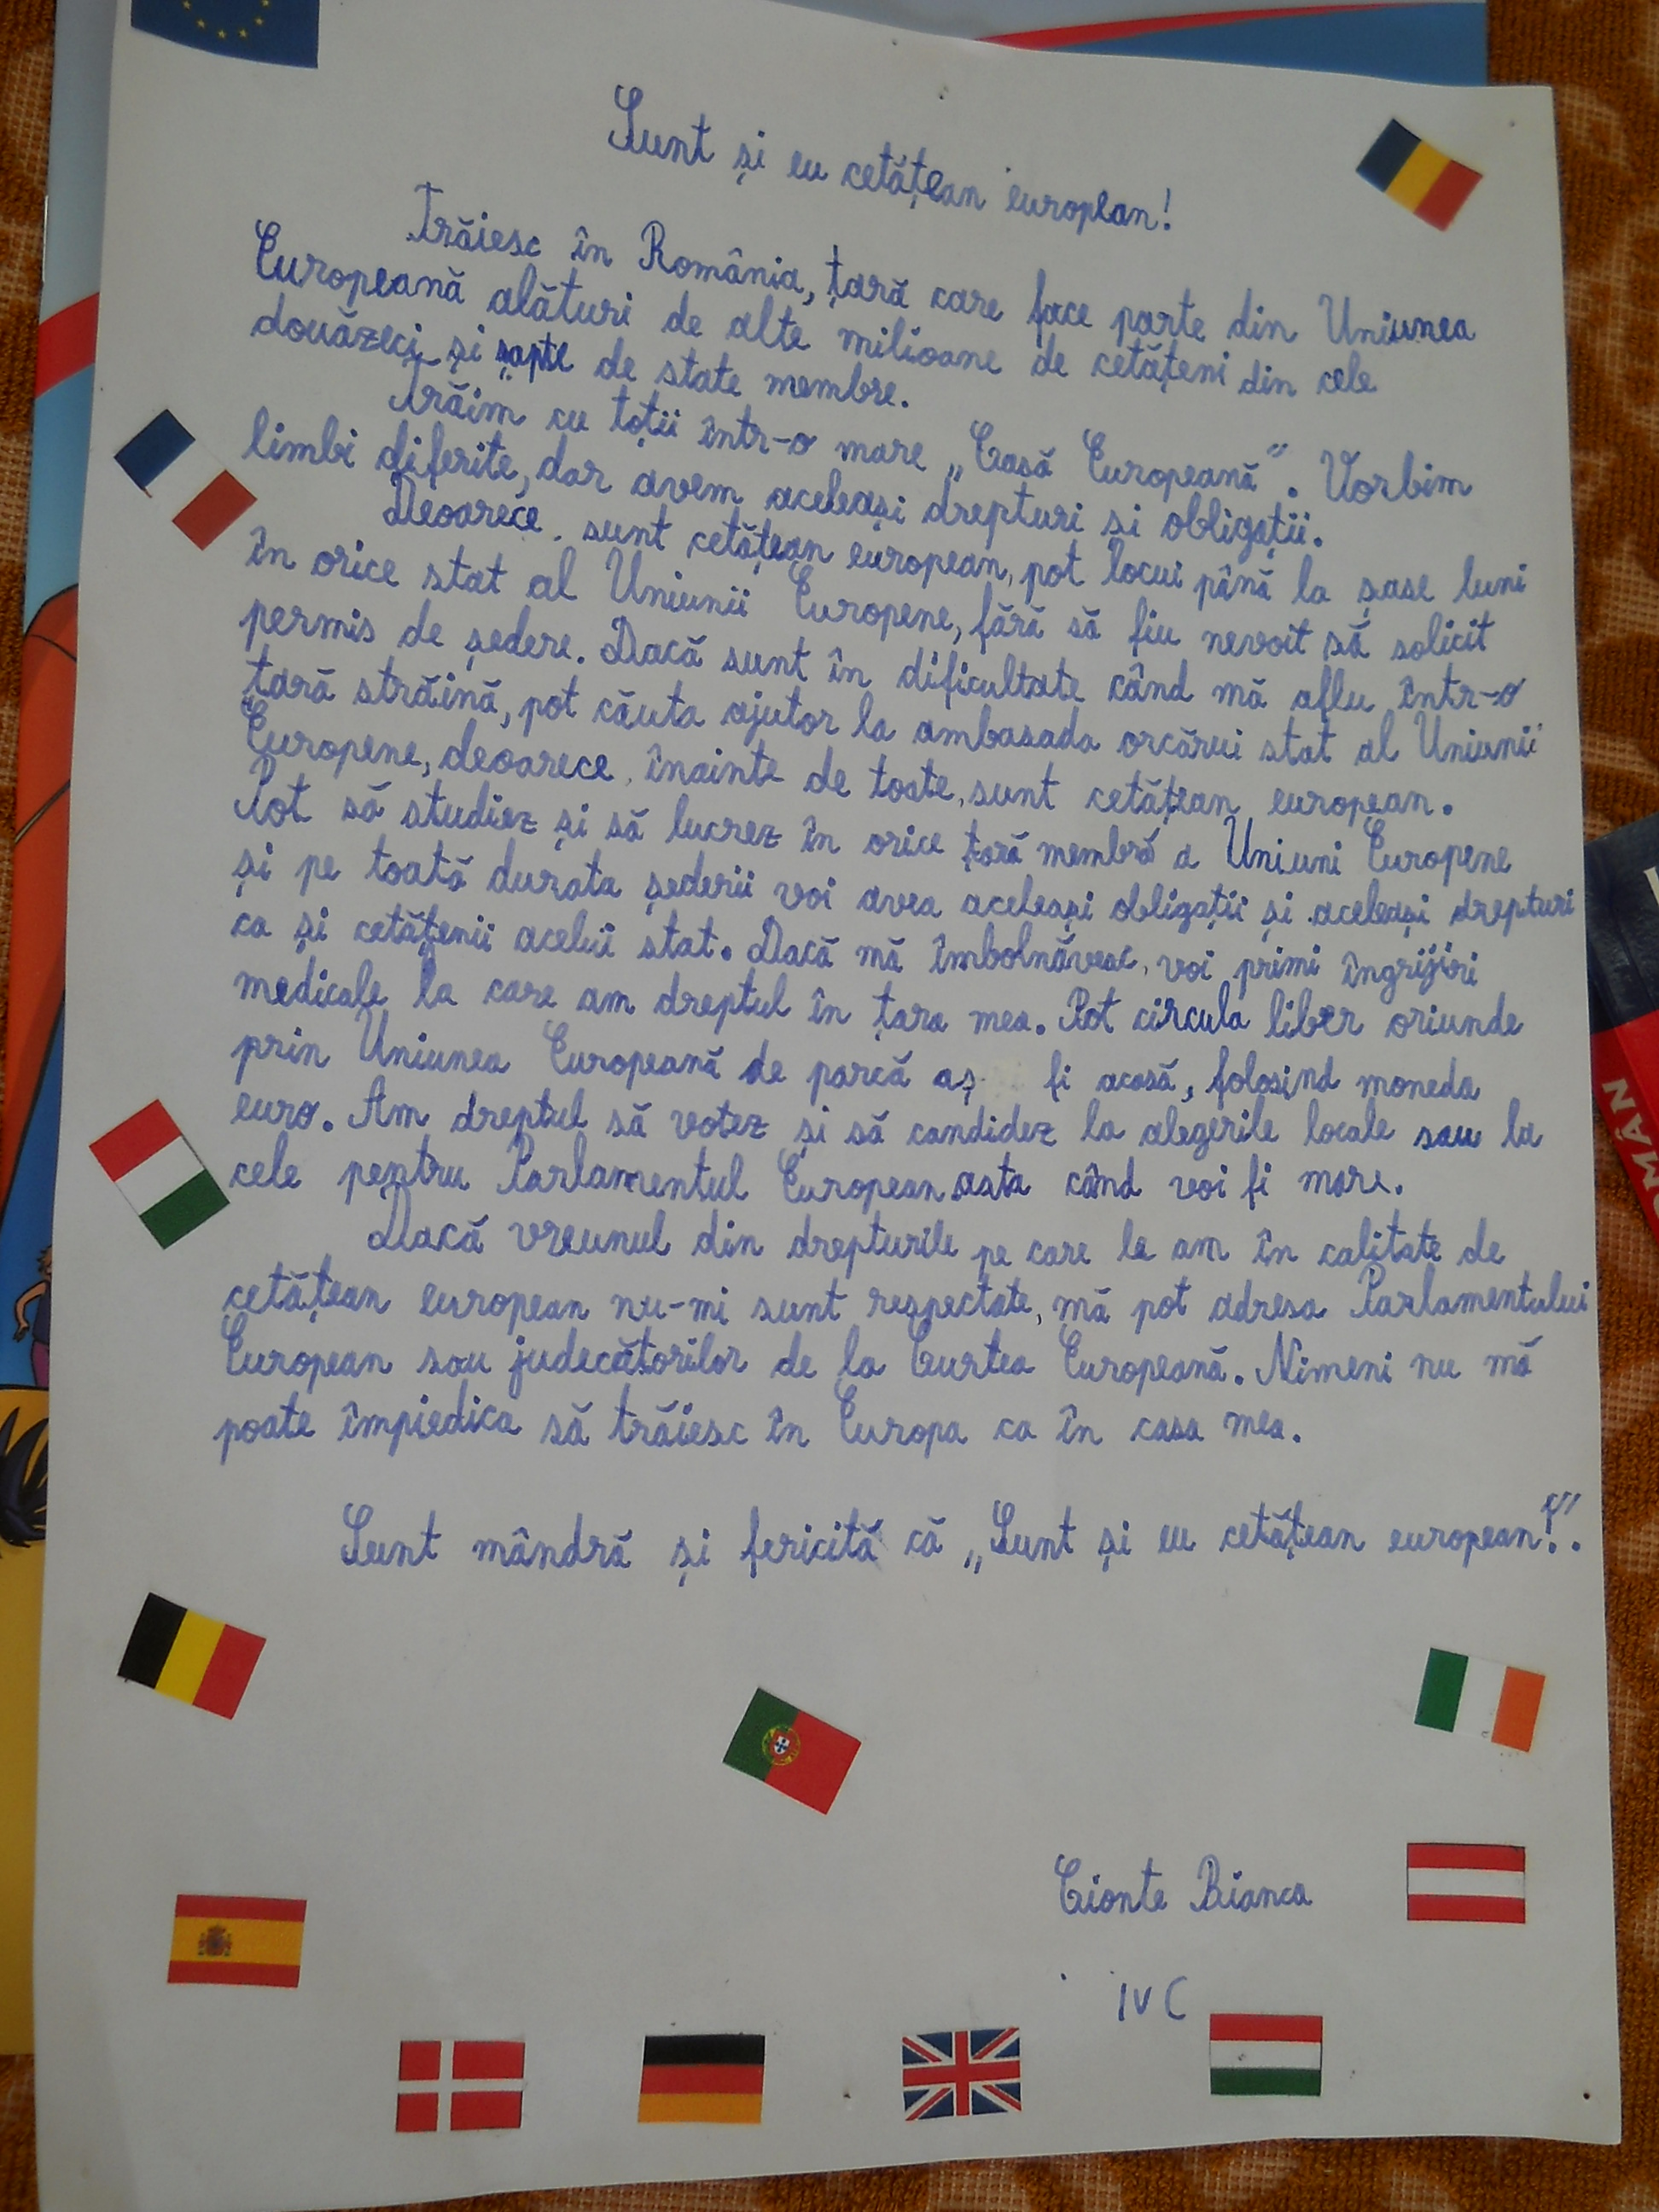 Sunt și eu cetățean european!
Trăiesc în România, țară care face parte din Uniunea
Europeană alături de alte milioane de cetățeni din cele
douăzeci și șapte de state membre.
Trăim cu toții într-o mare „Casă Europeană”. Vorbim
limbi diferite, dar avem aceleași drepturi si obligații.
Deoarece sunt cetățean european, pot locui până la șase luni
în orice stat al Uniunii Europene, fără să fiu nevoit să solicit
permis de ședere. Dacă sunt în dificultate când mă aflu într-o
țară străină, pot căuta ajutor la ambasada orcărui stat al Uniunii
Europene, deoarece, înainte de toate, sunt cetățean european.
Pot să studiez și să lucrez în orice țară membră a Uniuni Europene
și pe toată durata șederii voi avea aceleași obligații și aceleași drepturi
ca și cetățenii acelui stat. Dacă mă îmbolnăvesc, voi primi îngrijiri
medicale la care am dreptul în țara mea. Pot circula liber oriunde
prin Uniunea Europeană de parcă aș fi acasă, folosind moneda
euro. Am dreptul să votez și să candidez la alegerile locale sau la
cele pentru Parlamentul European asta când voi fi mare.
Dacă vreunul din drepturile pe care le am în calitate de
cetățean european nu-mi sunt respectate, mă pot adresa Parlamentului
European sau judecătorilor de la Curtea Europeană. Nimeni nu mă
poate împiedica să trăiesc în Europa ca în casa mea.
Sunt mândră și fericită că „Sunt și eu cetățean european!”.
Cionte Bianca
IV C